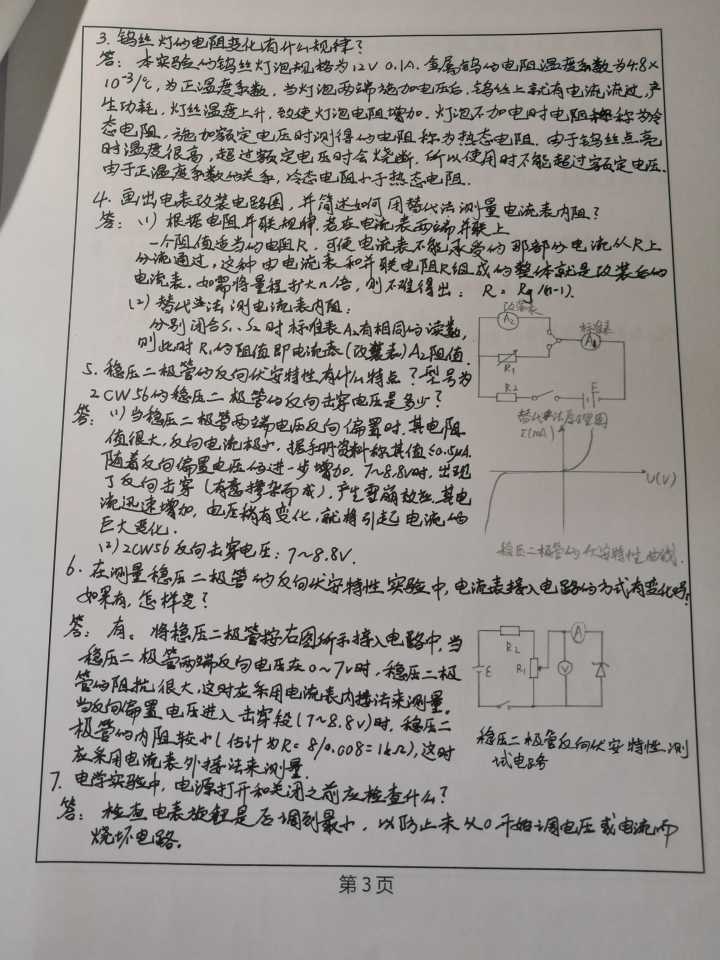 3. 钨丝灯的电阻变化有什么规律?
答: 本实验的钨丝灯泡规格为12V 0.1A. 金属钨的电阻温度系数为4.8×
10⁻³/℃, 为正温度系数. 当灯泡两端施加电压后, 钨丝上就有电流流过, 产
生功耗, 灯丝温度上升, 致使灯泡电阻增加. 灯泡不加电时电阻称为冷
态电阻, 施加额定电压时测得的电阻称为热态电阻. 由于钨丝点亮
时温度很高, 超过额定电压时会烧断. 所以使用时不能超过额定电压.
由于正温度系数的关系, 冷态电阻小于热态电阻.
4. 画出电表改装电路图, 并简述如何用替代法测量电流表内阻?
答: (1) 根据电阻并联规律. 若在电流表两端并联上
一个阻值适当的电阻R, 可使电流表不能承受的那部分电流从R上
分流通过, 这种由电流表和并联电阻R组成的整体就是改装后的
电流表. 如需将量程扩大n倍, 则不难得出: R = Rg/(n-1).
(2) 替代法测电流表内阻:
分别闭合S₁、S₂时标准表A₀有相同的读数,
则此时R₁的阻值即电流表(改装表)A₂阻值.
改装表
A₂
标准表
R₁
R₂
E
替代法原理图
5. 稳压二极管的反向伏安特性有什么特点? 型号为
2CW56的稳压二极管的反向击穿电压是多少?
答: (1) 当稳压二极管两端电压反向偏置时, 其电阻
值很大, 反向电流极小, 据手册资料称其值≤0.5μA.
随着反向偏置电压的进一步增加. 7~8.8V时, 出现
了反向击穿 (有意掺杂而成), 产生雪崩效应, 其电
流迅速增加, 电压稍有变化, 就将引起电流的
巨大变化.
(2) 2CW56反向击穿电压: 7~8.8V.
I(mA)
U(V)
稳压二极管的伏安特性曲线.
6. 在测量稳压二极管的反向伏安特性实验中, 电流表接入电路的方式有变化吗?
如果有, 怎样变?
答: 有。将稳压二极管按右图所示接入电路中, 当
稳压二极管两端反向电压在0~7V时, 稳压二极
管的阻抗很大, 这时应采用电流表内接法来测量。
当反向偏置电压进入击穿段(7~8.8V)时, 稳压二
极管的内阻较小(估计为R=8/0.008=1kΩ), 这时
应采用电流表外接法来测量.
R₂
A
E
R₁
V
稳压二极管反向伏安特性测
试电路
7. 电学实验中, 电源打开和关闭之前应检查什么?
答: 检查电表旋钮是否调到最小, 以防止未从0开始调电压或电流而
烧坏电路.
第3页